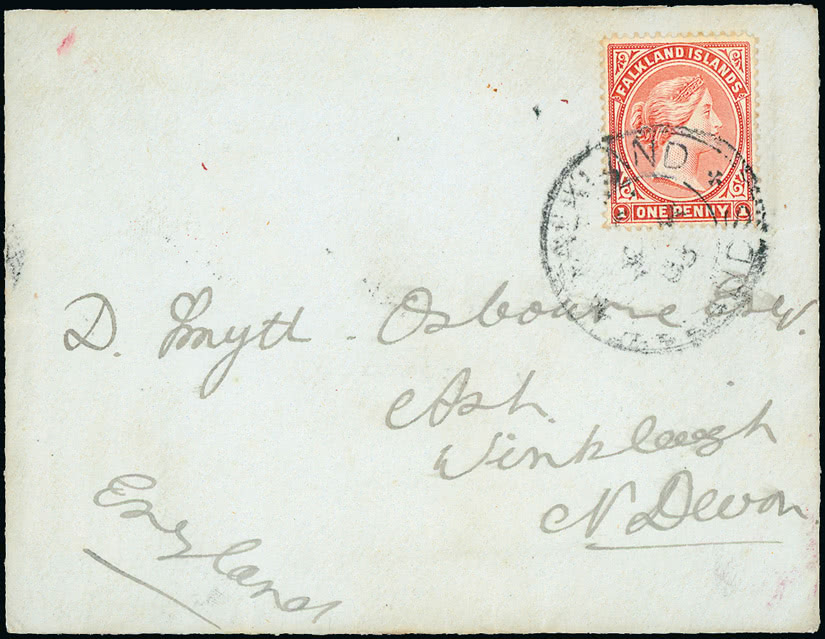 FALKLAND ISLANDS
1 ONE PENNY 1
D. Smyth - Osbourne Esq.
Ash.
Winkleigh
N. Devon
England